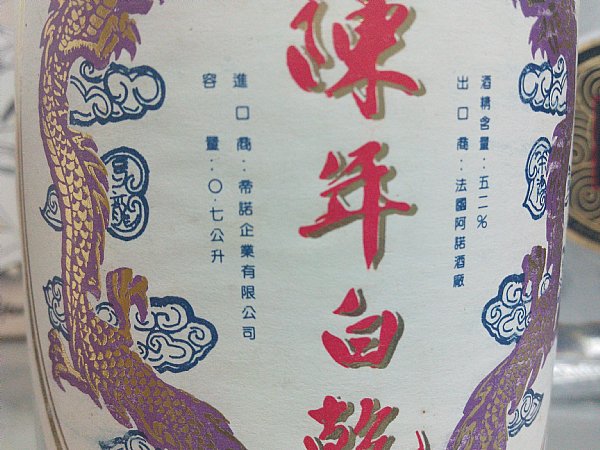 酒精含量：五二%
出口商：法國阿諾酒廠
陳年白乾
進口商：帝諾企業有限公司
容量：〇.七公升